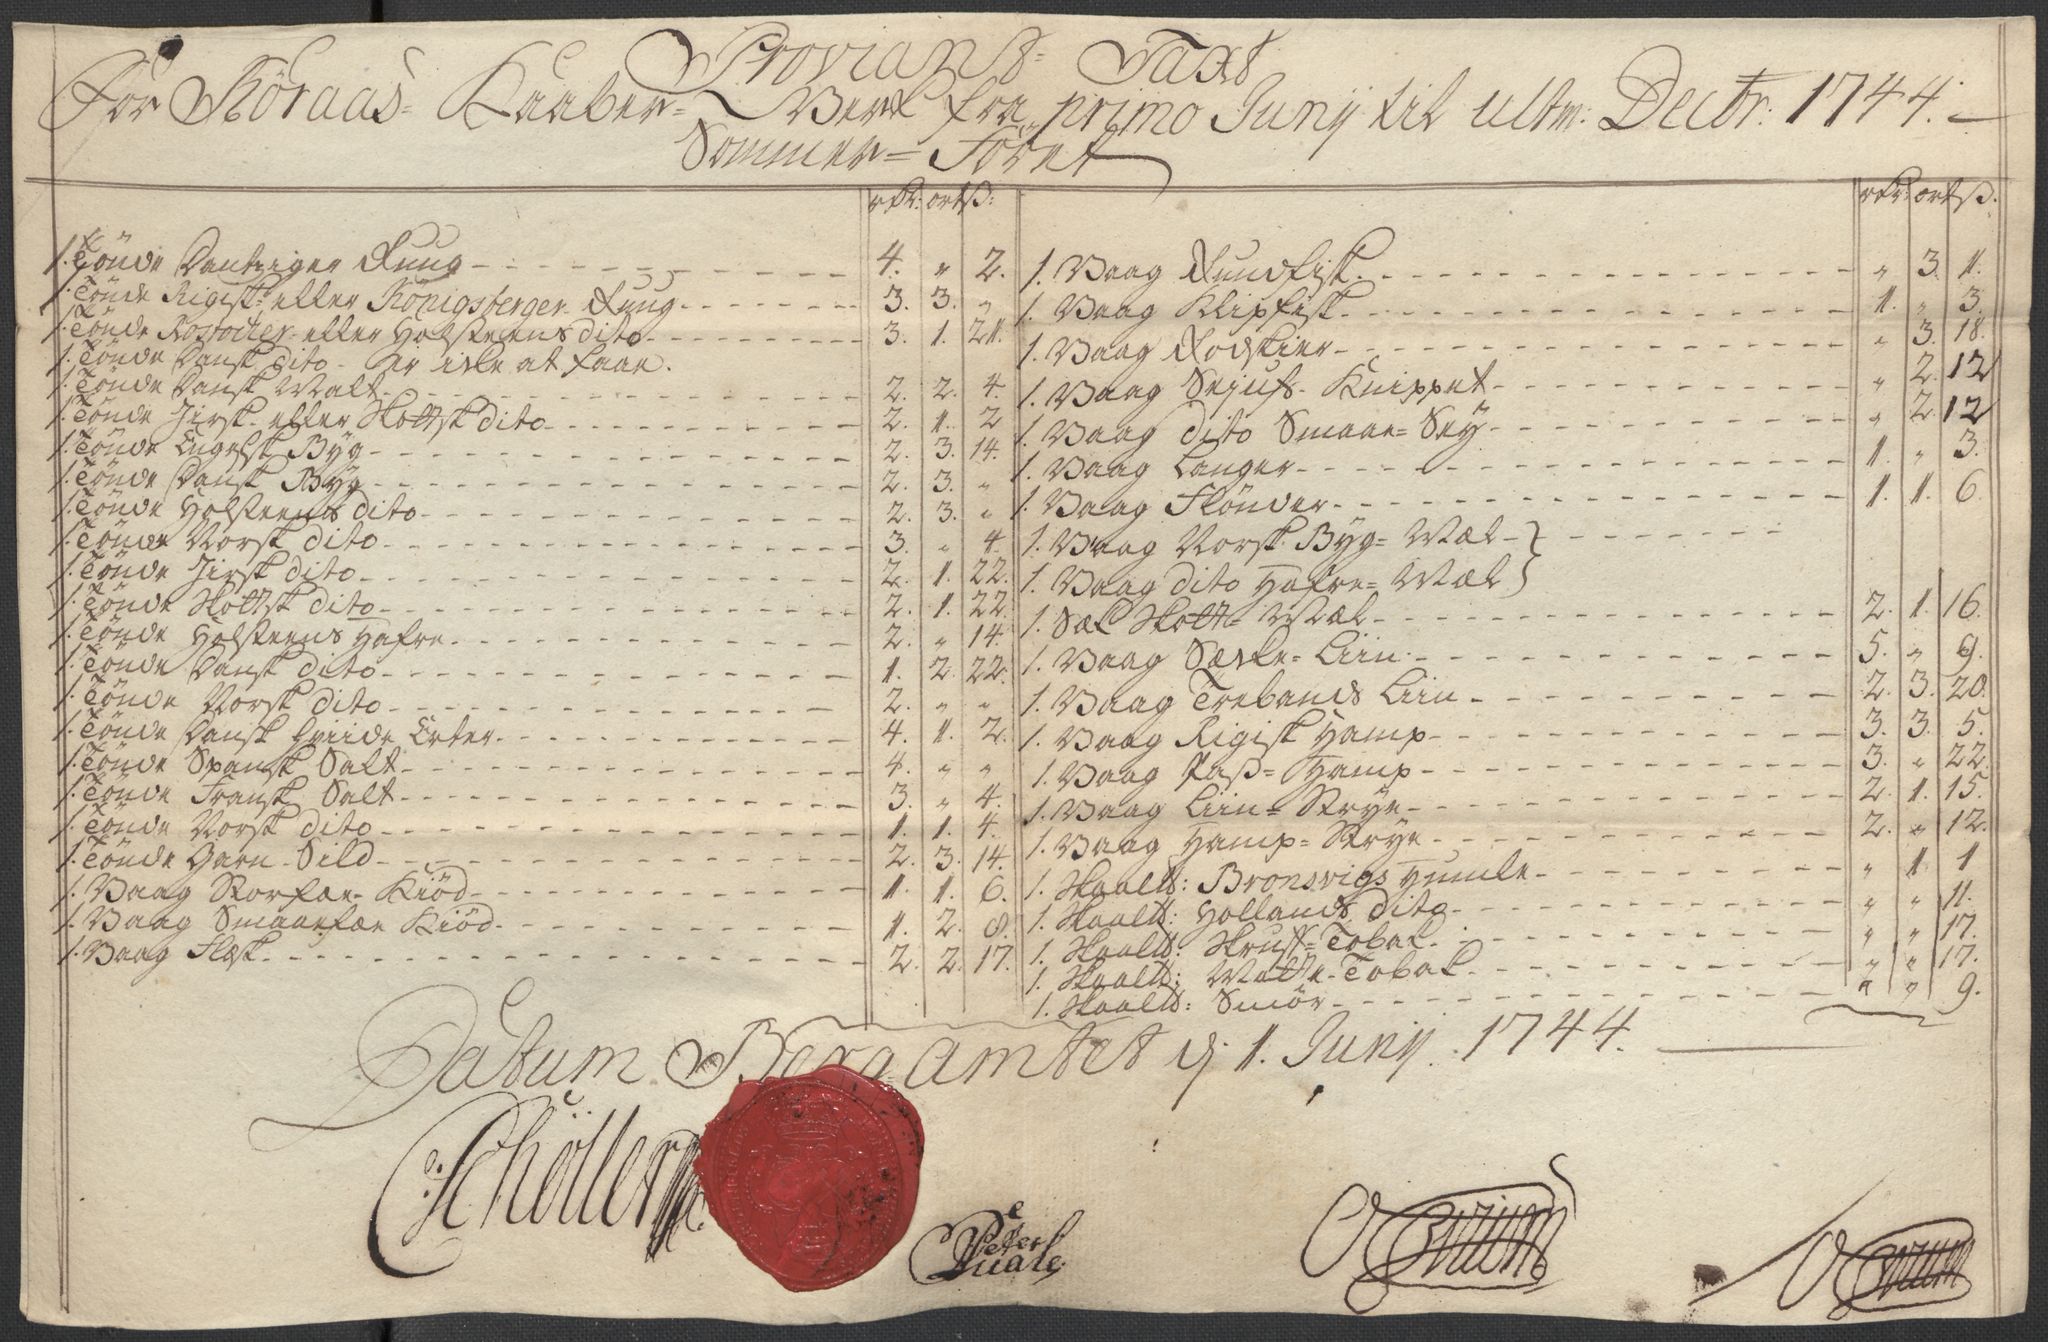 Proviant- Taxt
For Röraas- Kaaber- Verk fra primo Junij til ultm: Decbr: 1744.
Sommer- Föret
rdr: ort ß:
1. Tönde Dantziger Ruug 4. " 2.
1. Tönde Rigisk- eller Königsberger Ruug 3. 3. "
1. Tönde Rostocker- eller Holsteens dito 3. 1. 21.
1. Tönde Dansk dito - er icke at faae.
1. Tönde Dansk Malt 2. 2. 4.
1. Tönde Jirsk- eller Skottsk dito 2. 1. 2
1. Tönde Engelsk Byg 2. 3. 14.
1. Tönde Dansk Byg 2. 3. "
1. Tönde Holsteens dito 2. 3. "
1. Tönde Norsk dito 3. " 4.
1. Tönde Jirsk dito 2. 1. 22.
1. Tönde Skottsk dito 2. 1. 22.
1. Tönde Holsteens Hafre 2. " 14.
1. Tönde Dansk dito 1. 2. 22.
1. Tönde Norsk dito 2. " "
1. Tönde Dansk Hviide Erter 4. 1. 2.
1. Tönde Spansk Salt 4. " "
1. Tönde Fransk Salt 3. " 4.
1. Tönde Norsk dito 1. 1. 4.
1. Tönde Garn- Sild 2. 3. 14.
1. Vaag Storfæe- Kiöd 1. 1. 6.
1. Vaag Smaaefæe Kiöd 1. 2. 8.
1. Vaag Flesk 2. 2. 17.
rdr: ort ß.
1. Vaag Rundfisk " 3. 1.
1. Vaag Klipfisk 1. " 3.
1. Vaag Rodskier " 3. 18.
1. Vaag Sejufs- Knippet " 2. 12
1. Vaag dito Smaae- Sey " 2. 12
1. Vaag Langer 1. " 3.
1. Vaag Flönder 1. 1. 6.
1. Vaag Norsk Byg- Mæl
1. Vaag dito Hafre- Mæl
1. Sæk Skott- Mæl 2. 1. 16.
1. Vaag Særke- Liin 5. " 9.
1. Vaag Trebands Liin 2. 3. 20.
1. Vaag Rigisk Hamp 3. 3. 5.
1. Vaag Paß- Hamp 3. " 22.
1. Vaag Liin- Strye 2. 1. 15.
1. Vaag Hamp- Strye 2. " 12.
1. Skaald: Bronsvigs Humle " 1. 1
1. Skaald: Hollands dito " " 11.
1. Skaald: Skruff- Tobak " " 17.
1. Skaald: Matte- Tobak " " 17.
1. Skaald: Smör " " 9.
Datum Berg-Amtet d: 1. Junij. 1744.
Schöller
Peter